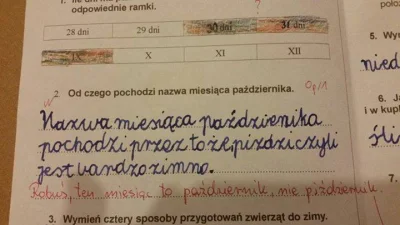 1. Ile dni m
odpowiednie ramki.
?
28 dni 29 dni 30 dni 31 dni
IX X XI XII
w 2. Od czego pochodzi nazwa miesiąca października. Op/1
Nazwa miesiąca października
pochodzi przez to że piździ czyli
jest bardzo zimno.
Robuś, ten miesiąc to październik, nie piździernik.
3. Wymień cztery sposoby przygotowań zwierząt do zimy.
poło
5. Wym
nied
6. Ja
i w kup
śli
7.